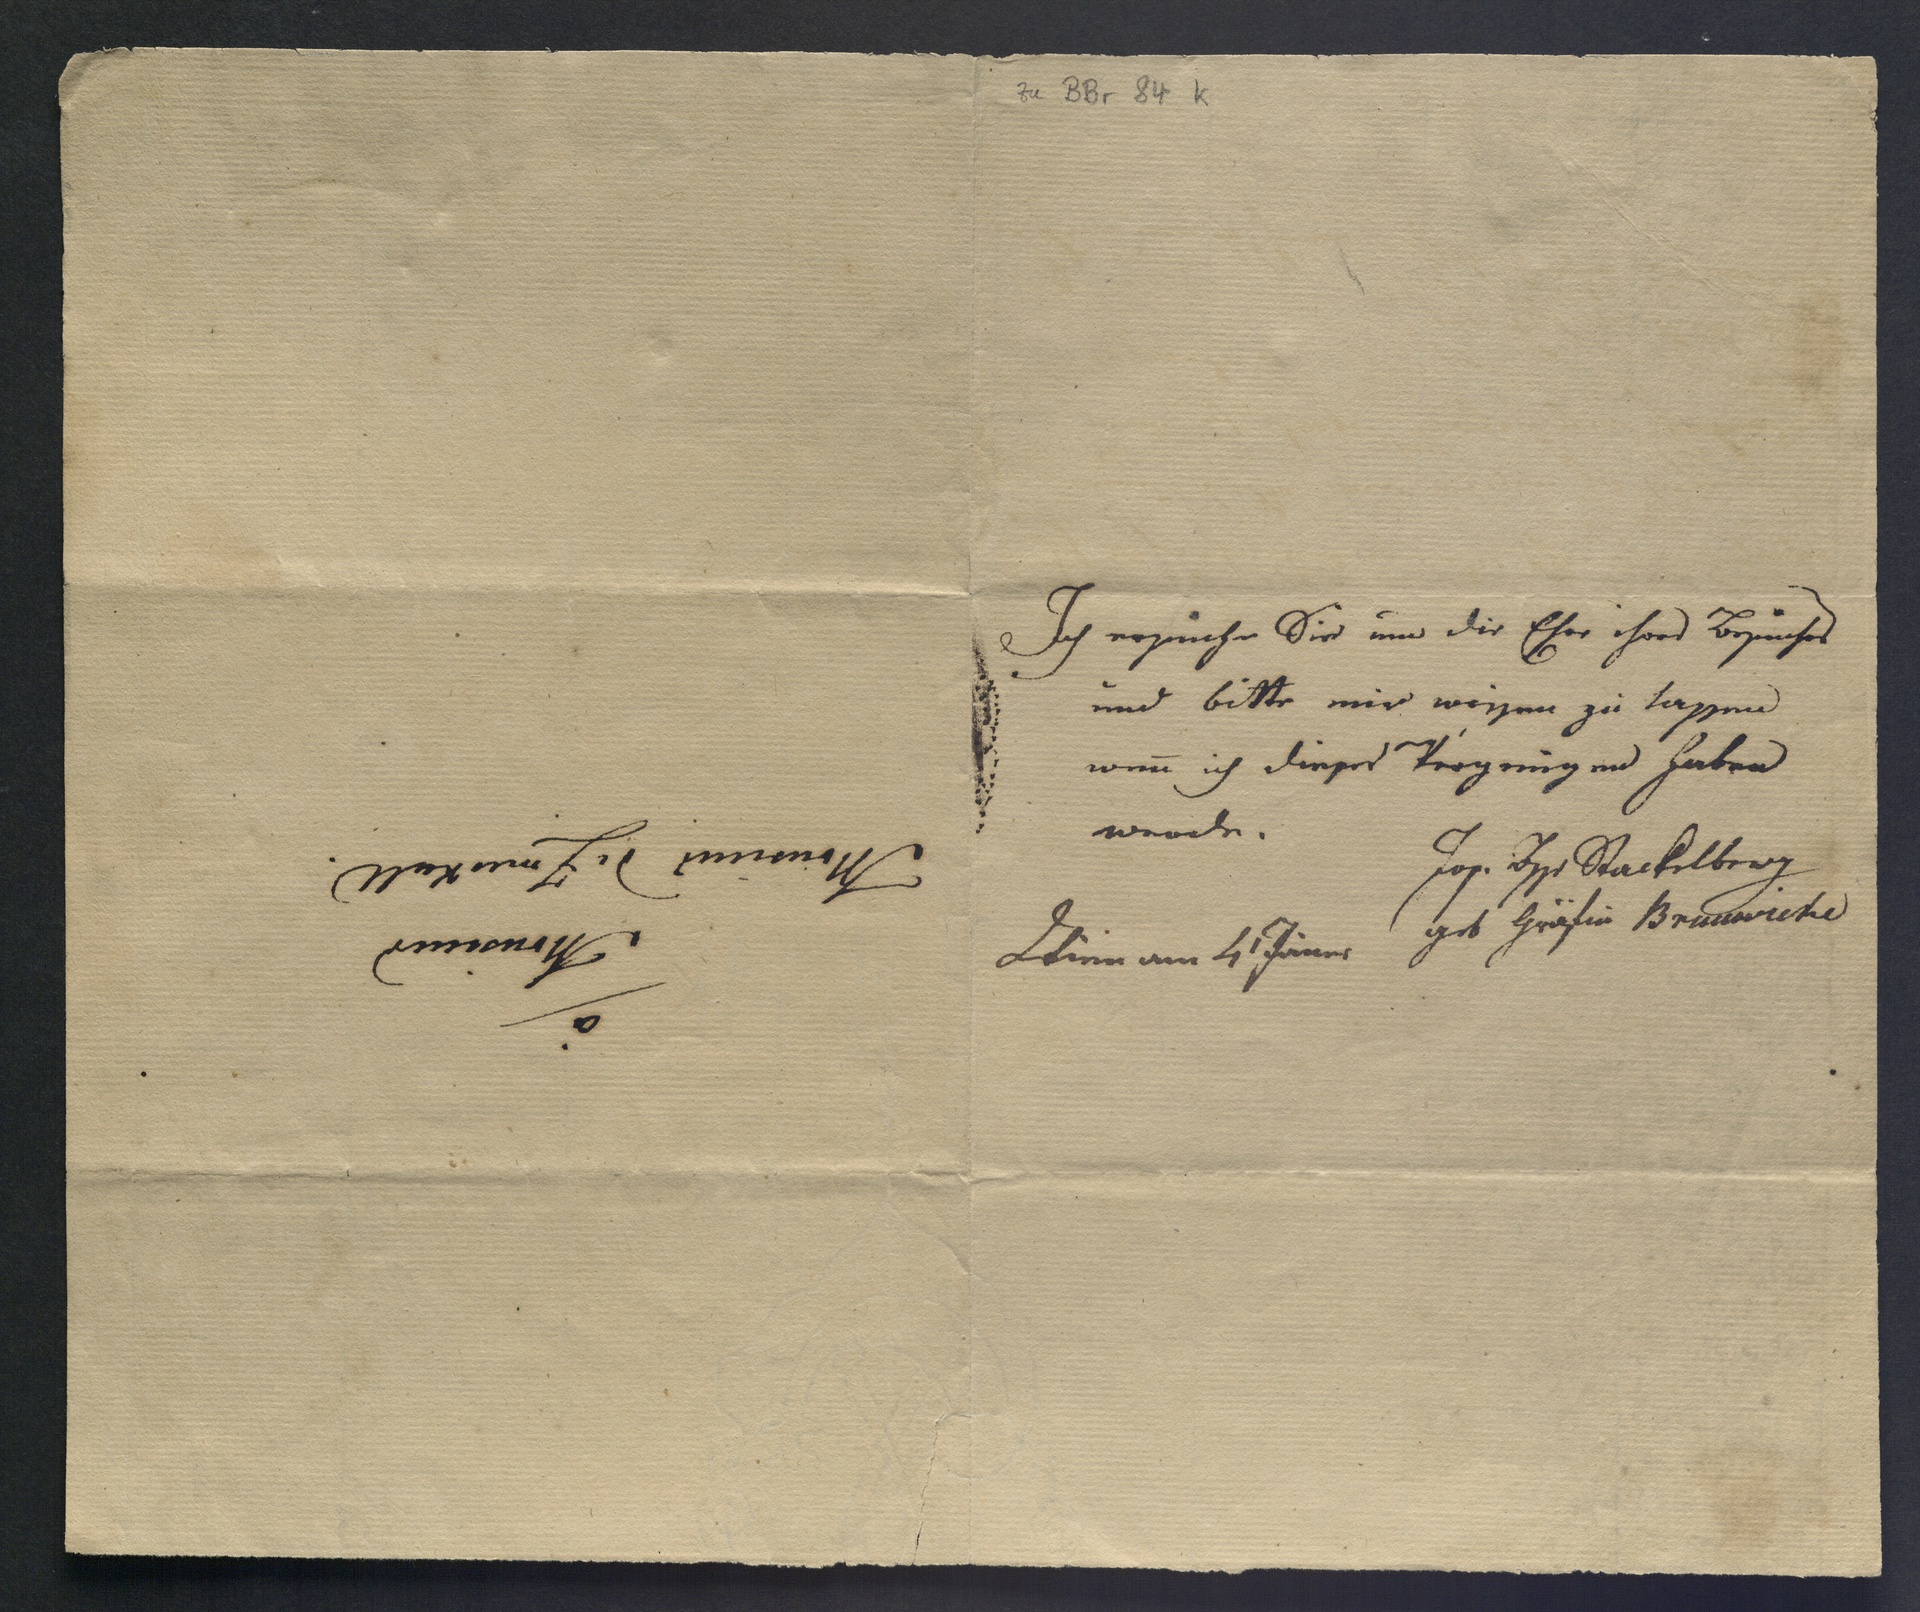 zu BBr 84 k
Ich ersuche Sie um die Ehre ihres Besuches
und bitte mir wissen zu lassen
wen̅ ich dieses Vergnügen haben
werde.
Jos. Bsse Stackelberg
geb Gräfin Brunswick
Wien am 4t Jäner
à
Monsieur
Monsieur de Zmeskall.